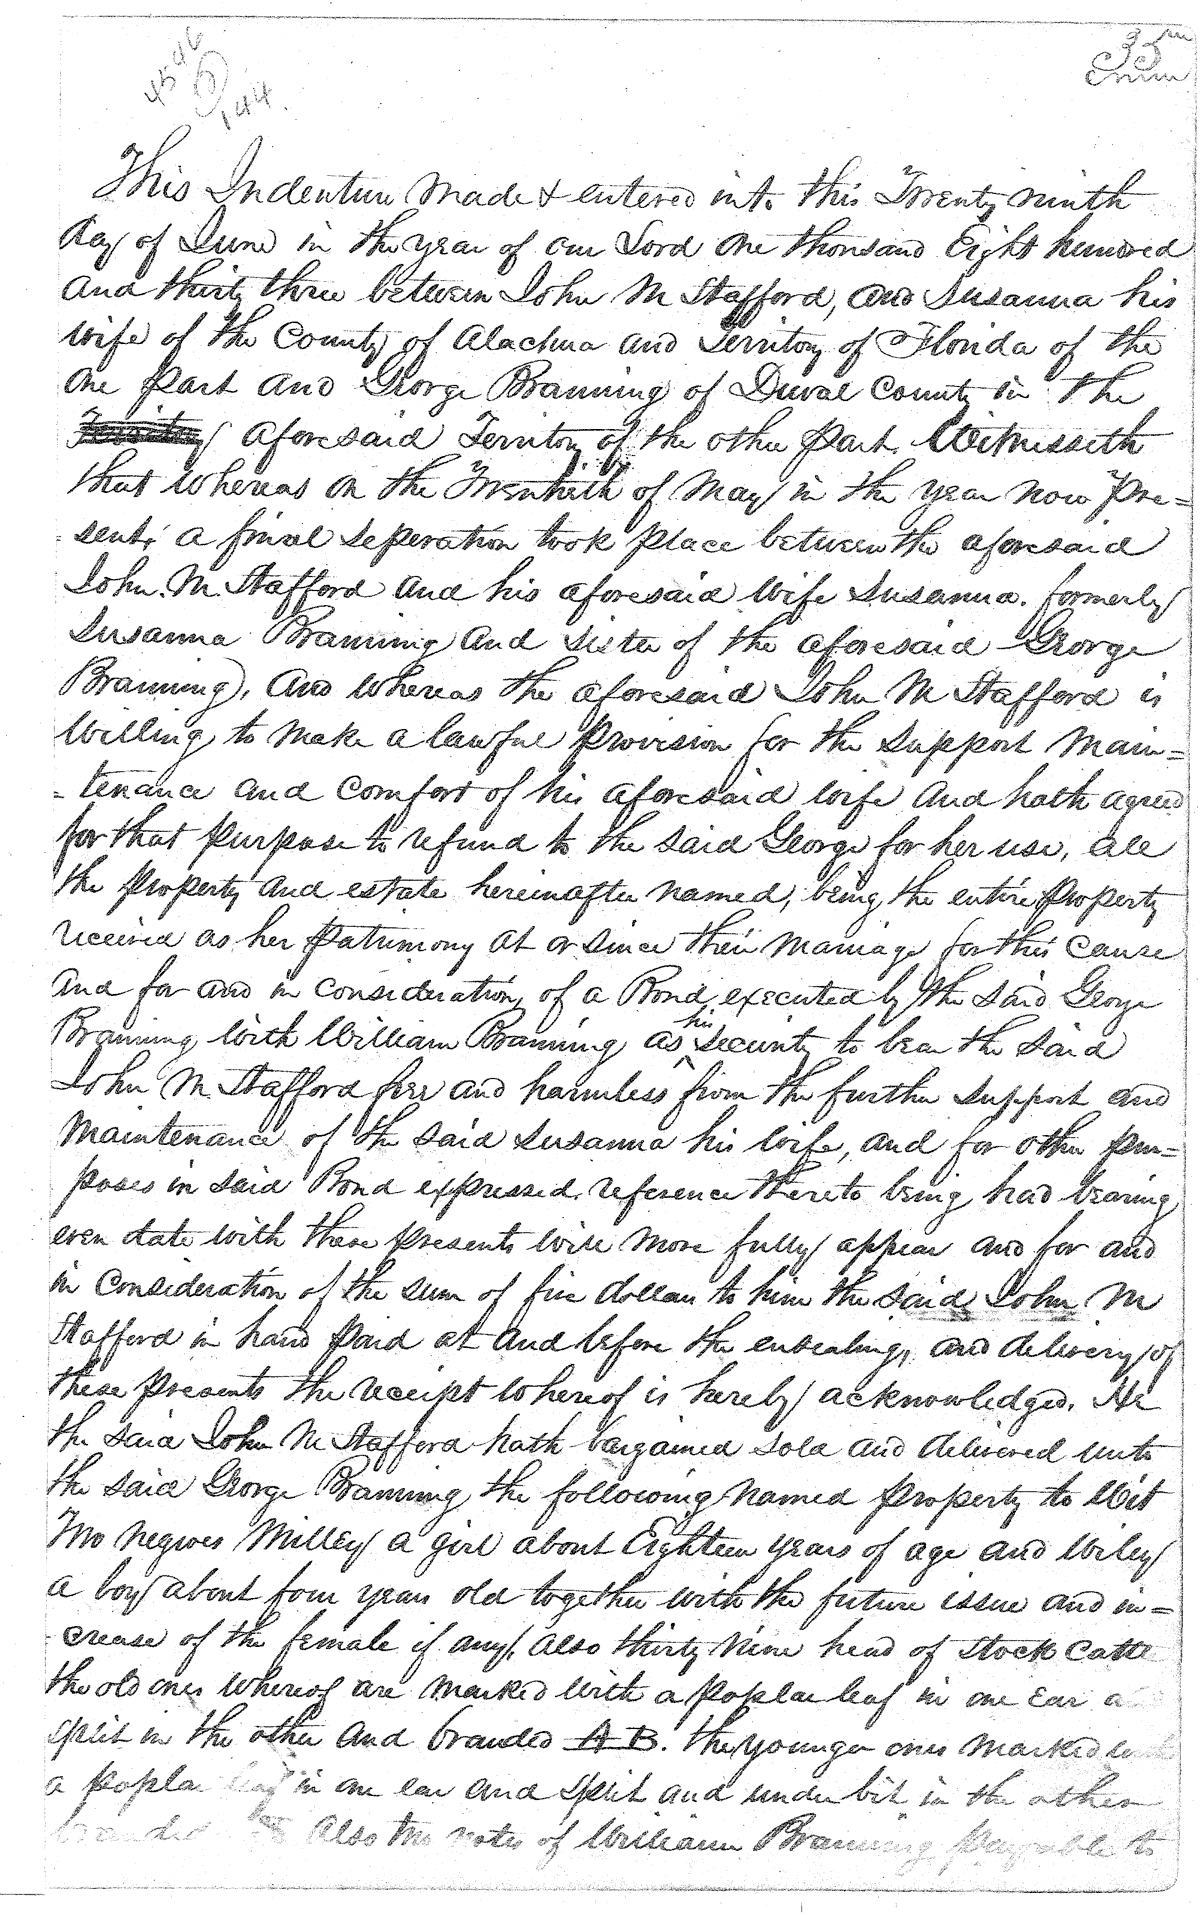 4546
144.
35
This Indenture Made & entered into this Twenty ninth
day of June in the year of our Lord One thousand Eight hundred
and thirty three between John M Stafford, and Susanna his
wife of the County of Alachua and Territory of Florida of the
One Part and George Branning of Duval County in the
Territory aforesaid Territory of the other Part. Witnesseth
that whereas on the Twentieth of May in the year now Pre=
-sent; a final Seperation took place between the aforesaid
John. M. Stafford and his aforesaid Wife Susanna. formerly
Susanna Branning and Sister of the aforesaid George
Branning), And whereas the aforesaid John M Stafford is
Willing to make a lawful Provision for the Support Main=
-tenance and Comfort of his aforesaid wife And hath agreed
for that purpose to refund to the said George for her use, all
the Property and estate hereinafter named, being the entire Property
received as her patrimony at or since their Marriage for this Cause
And for and in consideration of a Bond executed by the said George
Branning with William Branning as his Security to bear the said
John M Stafford free and harmless from the further Support and
Maintenance of the said Susanna his wife, and for other pur=
poses in said Bond expressed, reference thereto being had bearing
even date with these presents will more fully appear and for and
in consideration of the sum of five dollars to him the said John M
Stafford in hand Paid at and before the ensealing, and delivery of
these Presents the receipt whereof is hereby acknowledged. He
the said John M Stafford hath bargained sold and delivered unto
the said George Branning the following named property to Wit
Two negroes Milley a girl about Eighteen years of age and Wiley
a boy about four years old together with the future issue and in=
-crease of the female if any, Also thirty nine head of Stock Cattle
the old ones whereof are marked with a poplar leaf in one Ear a
split in the other and branded A B. the younger ones marked with
a poplar leaf in one ear and split and under bit in the other
branded Also two notes of William Branning payable to